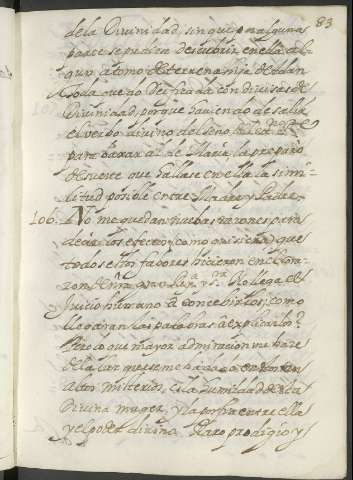 83
dela Divinidad, sin que por alguna
parte se pudiera descubrir en ella al-
gun atomo de terrena hija de Adan
toda quedo deificada con divisas de
Divinidad, porque haviendo de salir
el verbo divino del seno del eterno Pe
para baxar al de Maria, la preparò
de suerte que hallase en ella la simi-
litud posible entre Madre y Padre.
106. No me quedan nuebas razones para
decir los efectos, como quisiera, que
todos estos fabores hicieron en el Cora-
zon de nra gran Rna y Sra No llega el
Juicio humano à concebirlos, como
llegaran las palabras à explicarlos?
Pero lo que mayor admiracion me hace
de la luz que se me à dado en tan
altos misterios, es la humildad de esta
Divina muger, y la porfia entre ella
y el poder divino. Raro prodigio y